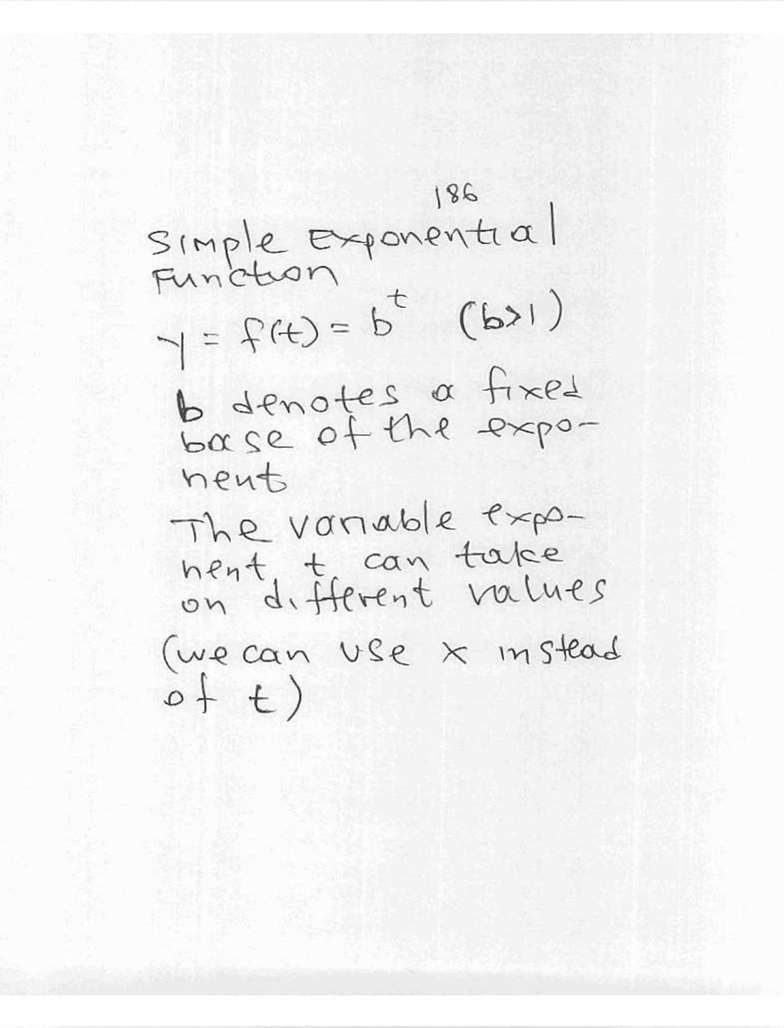 186
Simple Exponential
Function
y = f(t) = b^t (b>1)
b denotes a fixed
base of the expo-
nent
The variable expo-
nent t can take
on different values
(we can use x instead
of t)